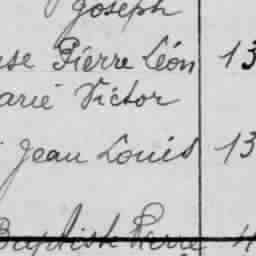 Joseph
Pierre Léon 13
Marie Victor
Jean Louis 13
Baptiste Pierre